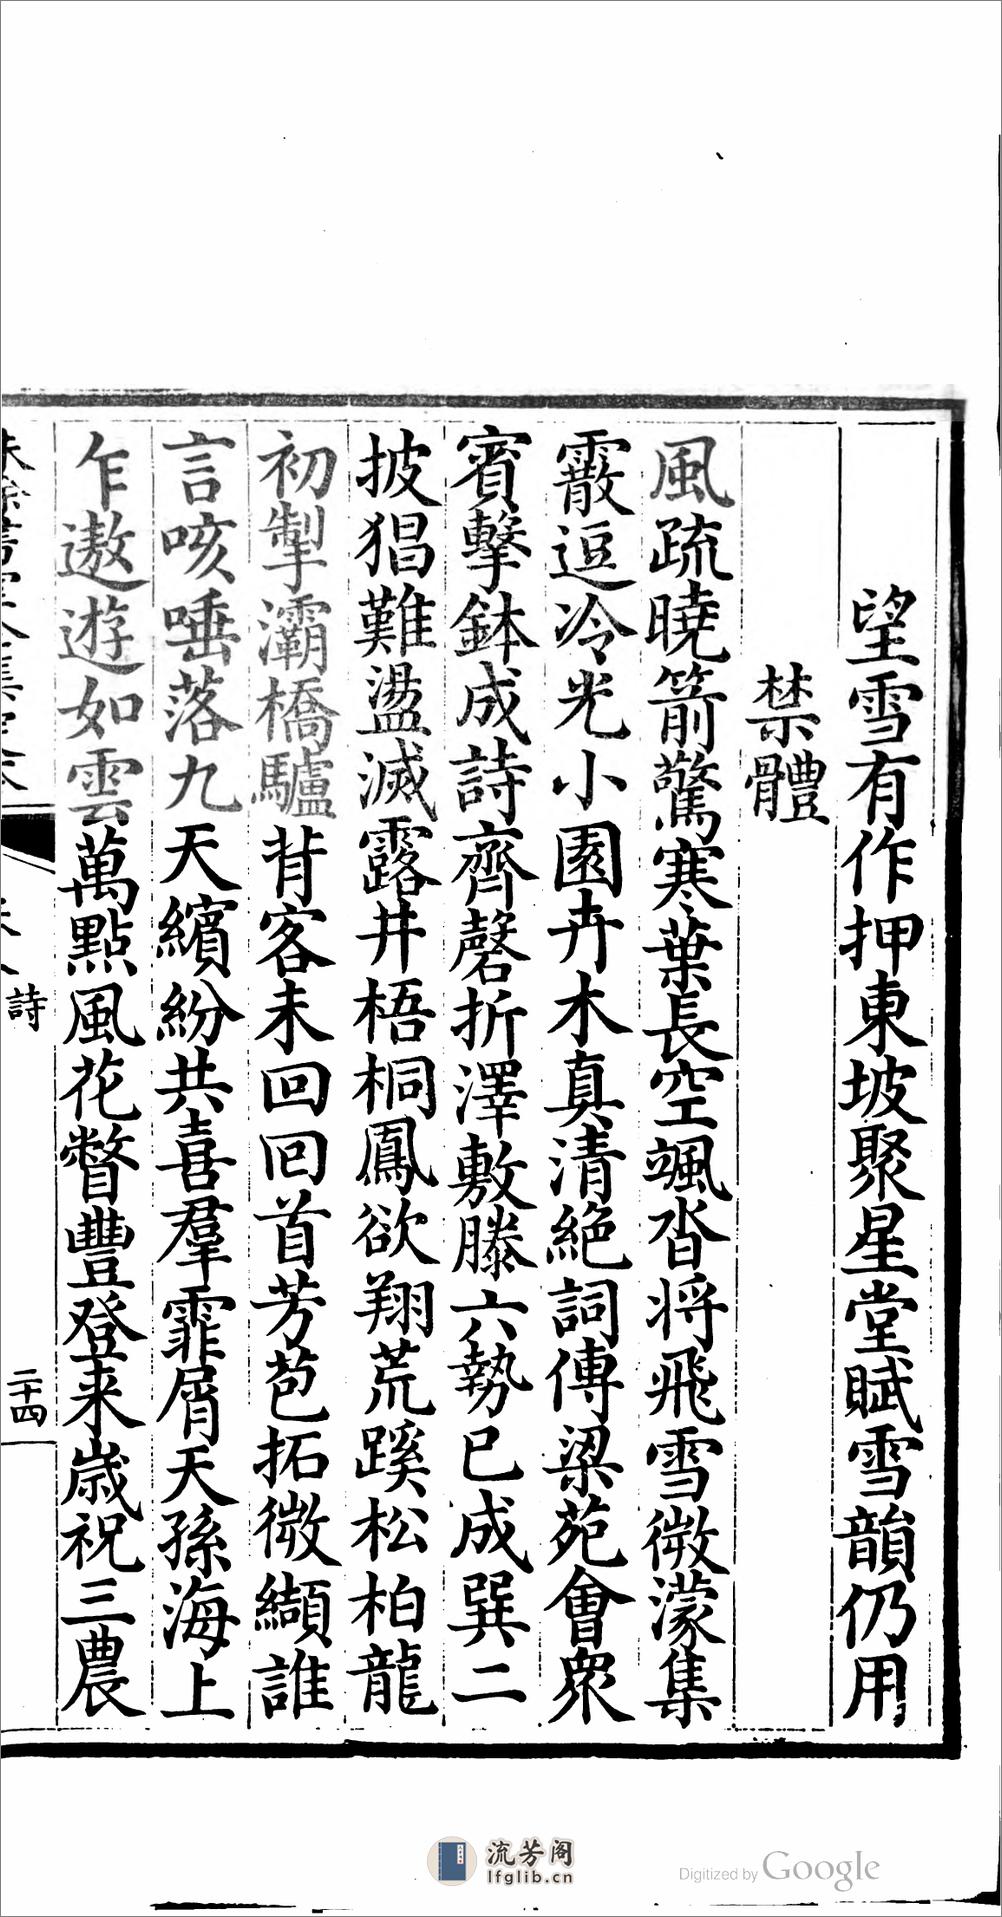 望雪有作押東坡聚星堂賦雪韻仍用
禁體
風疏曉箭驚寒葉長空颯沓将飛雪微濛集
霰逗冷光小園卉木真清絕詞傳梁苑會衆
賓擊鉢成詩齊磬折澤敷滕六勢已成巽二
披猖難盪滅露井梧桐鳳欲翔荒蹊松柏龍
初掣灞橋驢背客未回回首芳苞拓微纈誰
言咳唾落九天繽紛共喜羣霏屑天孫海上
乍遨遊如雲萬點風花瞥豐登来歲祝三農
詩
二十四
流芳阁
lfglib.cn
Digitized by Google